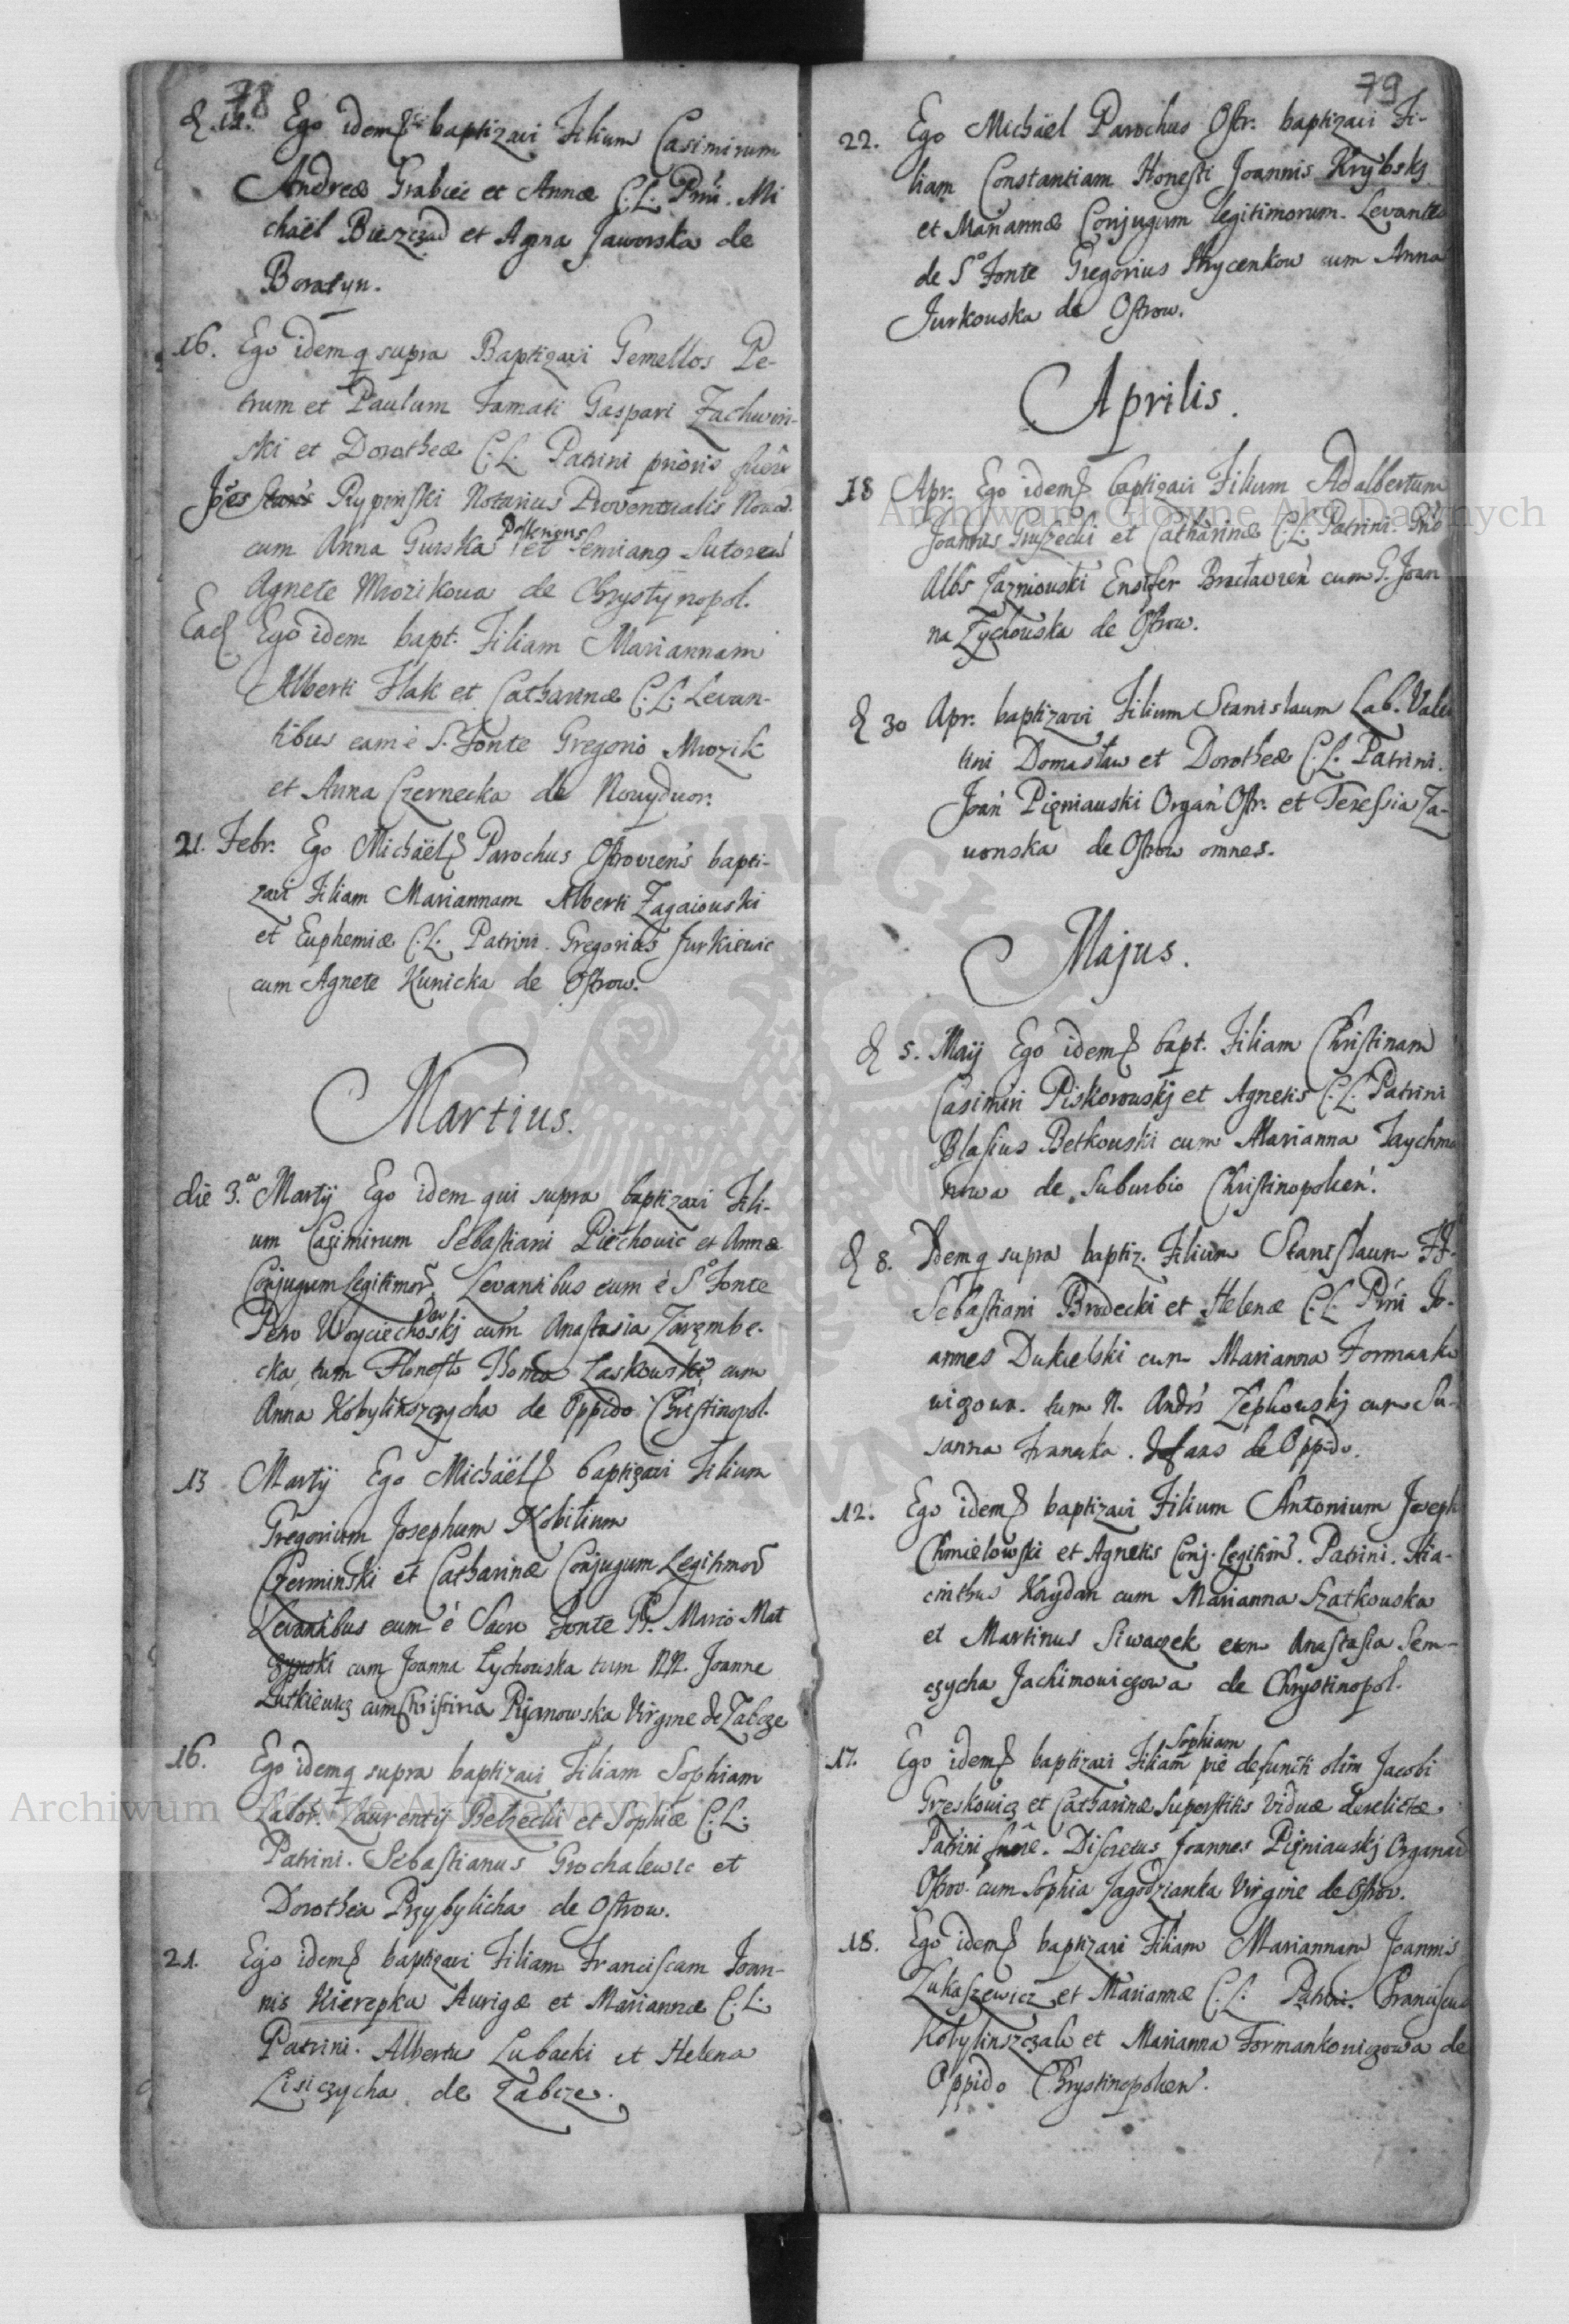 78
d. 12. Ego idem baptizavi Filium Casimirum
Andreæ Grabiec et Annæ C.L. Prni. Mi
chaël Bieszczad et Agna Jaworska de
Boratyn.
16. Ego idem q supra Baptizavi Gemellos Pe-
trum et Paulum Famati Gaspari Zachwin-
ski et Dorotheæ C.L. Patrini prioris fuêre
Rypinski Notarius Proventualis Novod.
cum Anna Gurska Posterioris et Semiano Sutore
Agnete Mrozikowa de Chrystynopol.
Ead Ego idem bapt. Filiam Mariannam
Alberti Flak et Catharinæ C.L. Levan-
tibus eam è S. Fonte Gregorio Mrozik
et Anna Czernecka de Nowydwor.
21. Febr. Ego Michaël Parochus Ostroviens bapti-
zavi Filiam Mariannam Alberti Zagaiouski
et Euphemiæ C.L. Patrini. Gregorius Jurkiewic
cum Agnete Kunicka de Ostrow.
Martius.
die 3.a Martij Ego idem qui supra baptizavi Fili-
um Casimirum Sebastiani Piechowic et Annæ
Conjugum Legitimor. Levantibus eum è S.o Fonte
Petro cum Anastasia Zaręmbe-
cka, tum Honesto Thoma Laskowski cum
Anna Kobylinszczycha de Oppido Christinopol.
13 Martij Ego Michaël baptizavi Filium
Gregorium Josephum Nobilium
Czerminski et Catharinæ Conjugum Legitimor
Levantibus eum è Sacro Fonte Marcio Mat
czynski cum Joanna Łychouska tum NN. Joanne
Lutkiewicz cum Christina Pijanowska Virgine de Zabcze
16. Ego idem q supra baptizavi Filiam Sophiam
Labor. Laurentij Belzecki et Sophiæ C.L.
Patrini. Sebastianus Grochalewic et
Dorothea Przybylicha de Ostrow.
21. Ego idem baptizavi Filiam Franciscam Joan-
nis Kierepka Aurigæ et Mariannæ C.L.
Patrini. Albertus Lubacki et Helena
Lisiczycha de Zabcze.
79
22. Ego Michaël Parochus Ostr. baptizavi Fi-
liam Constantiam Honesti Joannis Krybskj
et Mariannæ Conjugum legitimorum. Levantes
de S.o Fonte Gregorius Hrycenkow cum Anna
Jurkouska de Ostrow.
Aprilis.
18 Apr. Ego idem baptizavi Filium Adalbertum
Joannis Gruszecki et Catharinæ C.L. Patrini.
Albs Jazniouski Ensifer cum G. Joan
na Zychouska de Ostrow.
d 30 Apr. baptizavi Filium Stanislaum Lab. Valen
tini Domasław et Dorotheæ C.L. Patrini.
Joan Pięniauski Organ Ostr. et Teressia Za-
uonska de Ostrow omnes.
Majus.
d 5. Maij Ego idem bapt. Filiam Christinam
Casimiri Piskorouskj et Agnetis C.L. Patrini
Blasius Betkouski cum Marianna Taychma
nowa de Suburbio Christinopolien.
d 8. Idem q supra baptiz. Filium Stanislaum
Sebastiani Brodecki et Helenæ C.L. Prni Jo-
annes Dukielski cum Marianna Formanko
wiczowa. tum N. Andrs Zepkowskj cum Su-
sanna de Oppido.
12. Ego idem baptizavi Filium Antonium Joseph
Chmielowski et Agnetis Conj. Legitim. Patrini. Hia-
cinthus Kaydan cum Marianna Szatkouska
et Martinus Siwaczek cum Anastasia Sem-
czycha Jachimowiczowa de Chrystinopol.
17. Ego idem baptizavi Filiam Sophiam pie defuncti olim Jacobi
Grzeskowicz et Catharinæ Superstitis Viduæ derelictæ.
Patrini fuere. Discretus Joannes Pięniauskj Organar
Ostrov. cum Sophia Jagodzianka Virgine de Ostrov.
18. Ego idem baptizavi Filiam Mariannam Joannis
Lukaszewicz et Mariannæ C.L. Patrini. Franciscus
Kobylinszczak et Marianna Formankowiczowa de
Oppido Chrystinopolien.
Archiwum Główne Akt Dawnych
Archiwum Główne Akt Dawnych